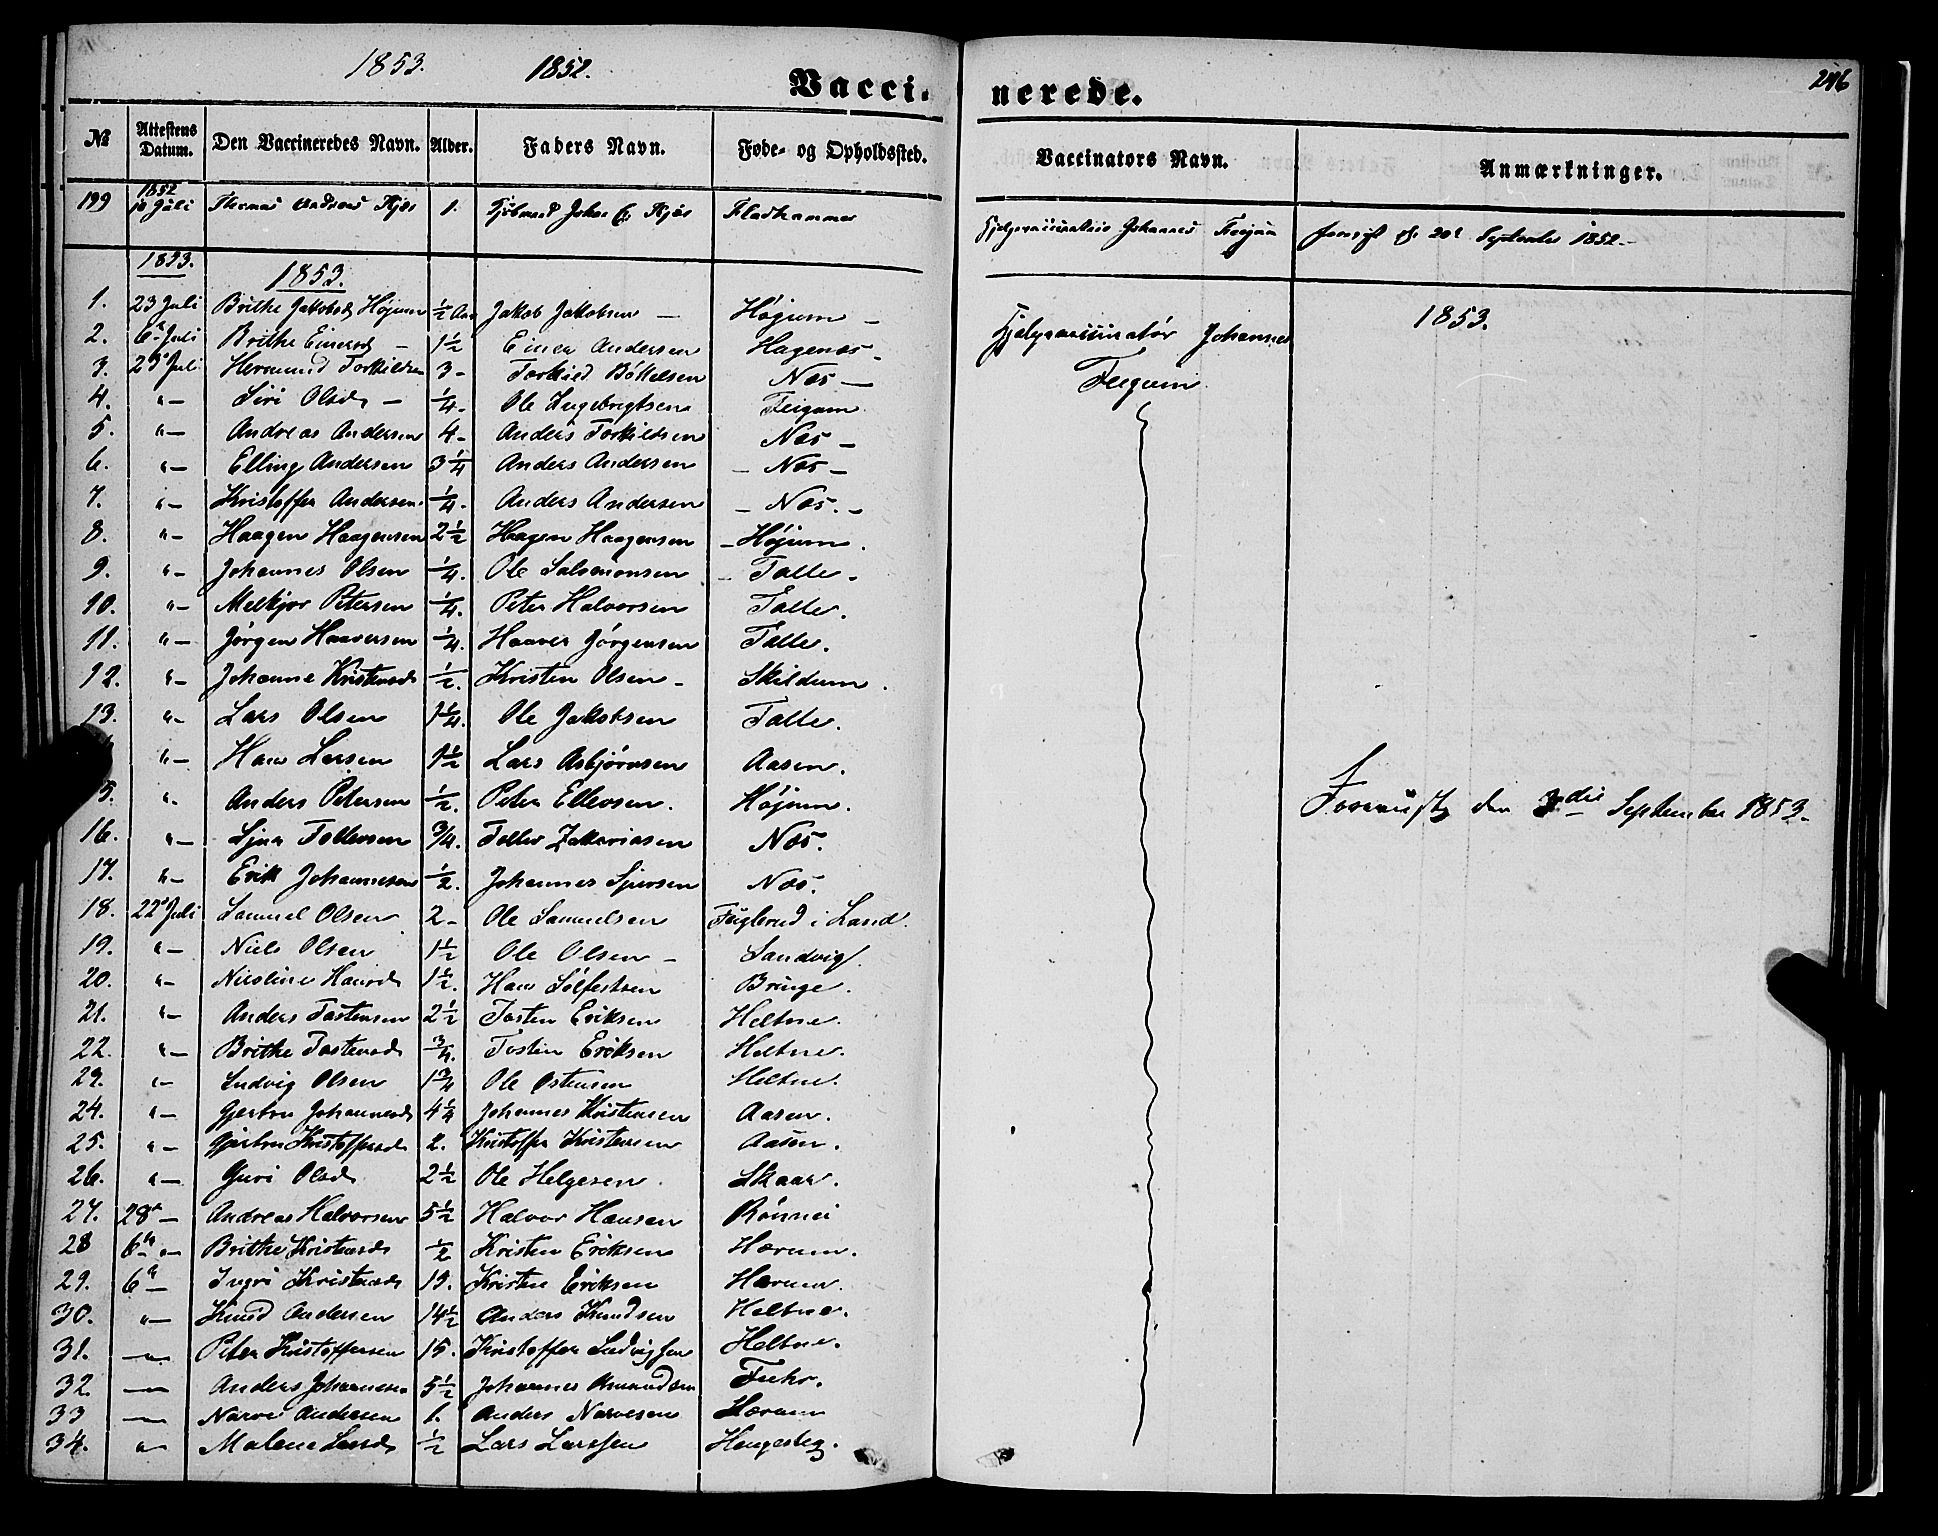 1853. 1852. Vaccinerede. 246
№ Attestens Datum. Den Vaccineredes Navn. Alder. Faders Navn. Føde- og Opholdssted. Vaccinators Navn. Anmærkninger.
199 1852 Juli Thomas 1. Johan Fladhammer Johannes Feigum den 20 September 1852.
1853. 1853.
1. 23 Juli Brithe Jakobsd Højum ½ Aar Jakob Jakobsen – Højum – Hjelpevaccinatør Johannes 1853.
2. 6te Juli Brithe Einersd – 1½ Einer Andersen Hagenæs – Feigum
3. 23de Juli Hermund Torkildsen 3 – Torkild Bottelsen Næs –
4. "– Siri Olsd – ¼ – Ole Ingebregtsen Feigum
5. "– Andreas Andersen 4 – Anders Torkildsen Næs –
6. "– Elling Andersen 3¼ Anders Andersen – Næs –
7. "– Kristoffer Andersen ¼. Anders Andersen – Næs. –
8. "– Haagen Haagensen 2½ Haagen Haagensen – Højum.
9. "– Johannes Olsen ¼. Ole Salomonsen – Talle.
10. "– Melkjor Petersen ¼. Peter Halvorsen Talle.
11. "– Jörgen Haaversen ¼. Haaver Jörgensen Talle.
12. "– Johanne Kristensd ½. Kristen Olsen – Skildum.
13. "– Lars Olsen 1¼. Ole Jakobsen Talle.
"– Hans Larsen 1½ Lars Asbjörnsen Aasen.
5. ". Anders Petersen ½. Peter Ellevsen. Højum. Forevist den 3die September 1853.
16. "– Sjur Tollevsen ¾. Tollev Zakariasen Næs.
17. "– Erik Johannesen ½. Johannes Sjursen Næs.
18. 22de Juli Samuel Olsen 2 – Ole Samuelsen Fuglerud i Land.
19. "– Niels Olsen 1½ Ole Olsen – Sandvig
20. "– Nicoline Hansd 1½. Hans Sølfestsen Bringe.
21. "– Anders Tostensen 2½ Tosten Eriksen Heltne.
22. "– Brithe Tostensd ¾. Tosten Eriksen Heltne.
23. "– Ludvig Olsen 1¾ Ole Ostensen Heltne.
24. "– Gjertru Johannesd 4¼ Johannes Kristensen Aasen.
25. "– Gjertru Kristoffersd 2. Kristoffer Kristensen Aasen.
26. "– Guri Olsd 2½ Ole Helgesen. Skaar.
27. 28de – Andreas Halvorsen 5½ Halvor Hansen Rönnei
28 6te "– Brithe Kristensd ½ Kristen Eriksen Hærum.
29. 6te – Ingri Kristensd 19. Kristen Eriksen Hærum.
30. "– Knud Andersen 14½ Anders Knudsen Heltne.
31. –"– Peter Kristoffersen 15. Kristoffer Ludvigsen Heltne.
32. –"– Anders Johannesen 5½ Johannes Amundsen Fuhr.
33 –"– Narve Andersen 1. Anders Narvesen Hærum
34. "– Malene Larsd ½ Lars Larssen Hengesteg